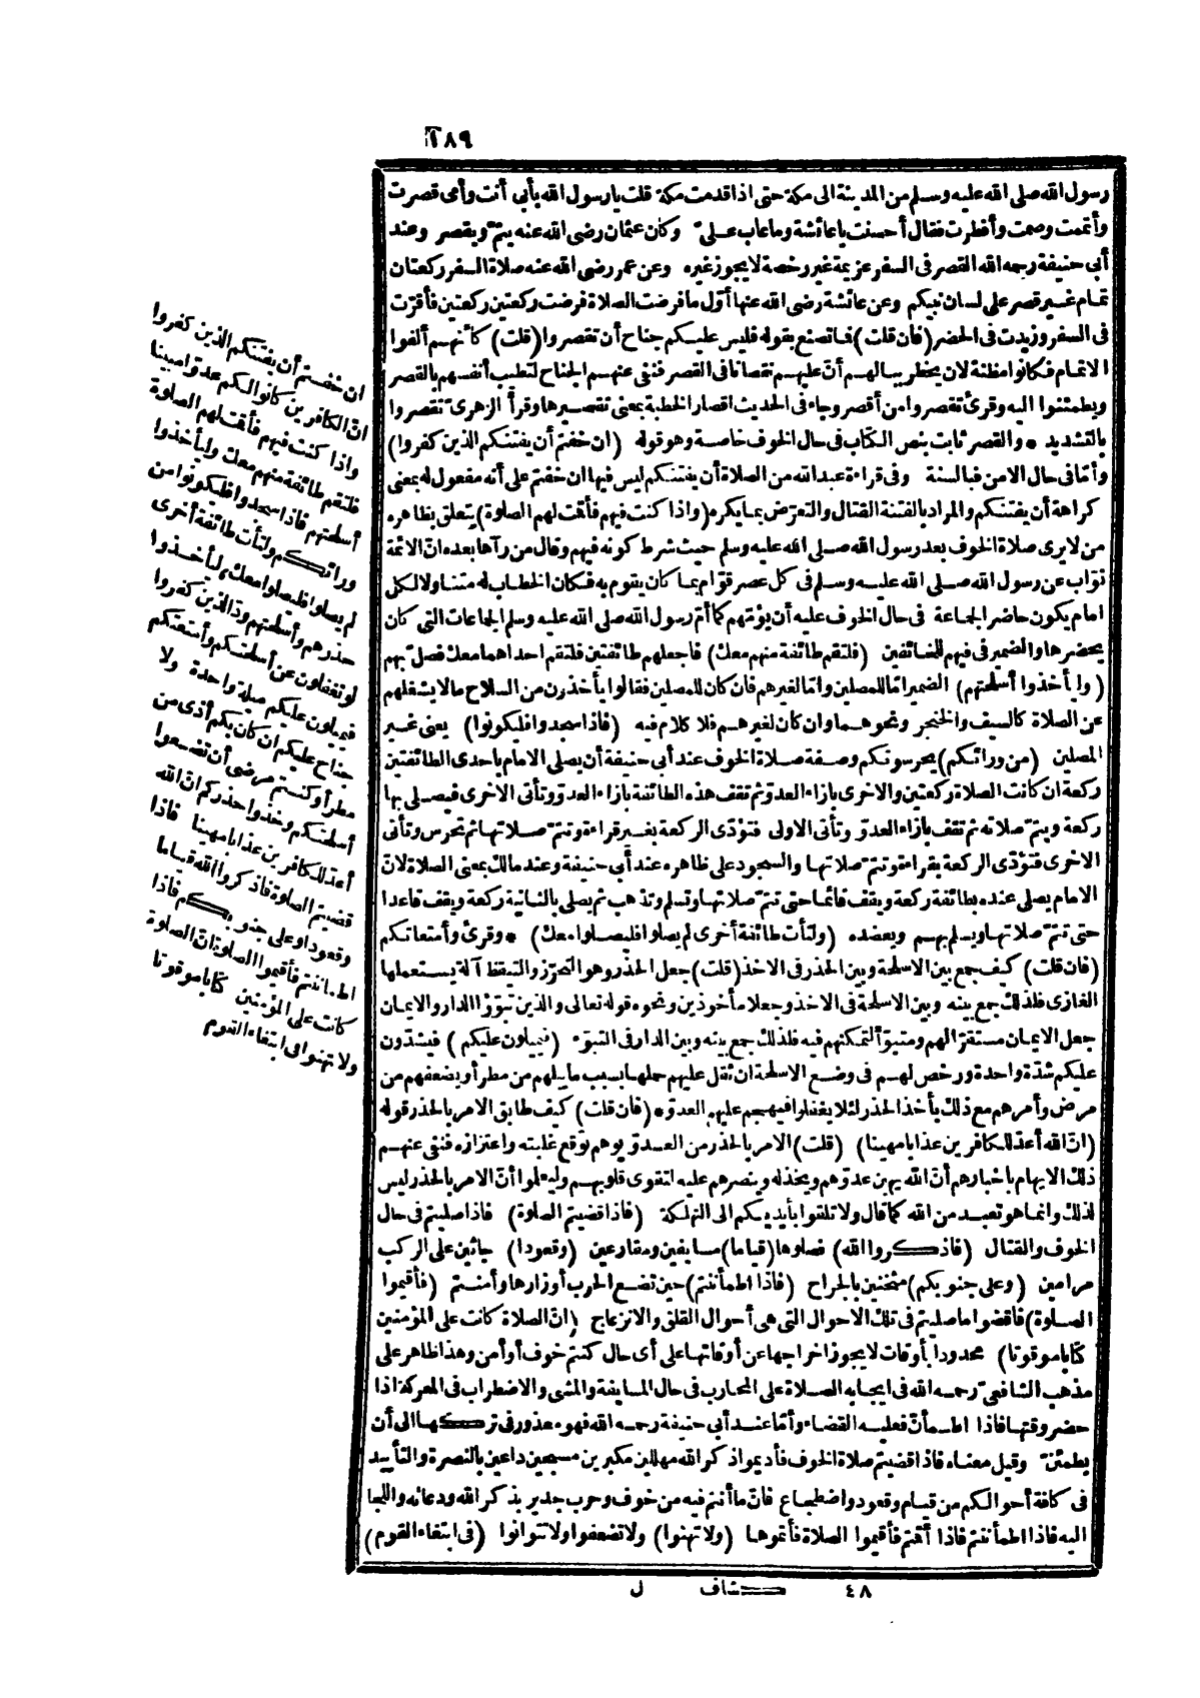 ٢٨٩
رسول الله صلى الله عليه وسلم من المدينة الى مكة حتى اذا قدمت مكة قلت يا رسول الله بأبى أنت وأمى قصرت
وأتممت وصمت وأفطرت فقال أحسنت يا عائشة وما عاب علىّ وكان عثمان رضى الله عنه يتم ويقصر وعند
أبى حنيفة رحمه الله القصر فى السفر عزيمة غير رخصة لا يجوز غيره وعن عمر رضى الله عنه صلاة السفر ركعتان
تمام غير قصر على لسان نبيكم وعن عائشة رضى الله عنها أوّل ما فرضت الصلاة فرضت ركعتين ركعتين فأقرّت
فى السفر وزيدت فى الحضر (فان قلت) فما تصنع بقوله فليس عليكم جناح أن تقصروا (قلت) كأنهم ألفوا
الاتمام فكانوا مظنة لان يخطر ببالهم أنّ عليهم نقصانا فى القصر فنفى عنهم الجناح لتطيب أنفسهم بالقصر
ويطمئنوا اليه وقرئ تقصروا من أقصر وجاء فى الحديث اقصار الخطبة بمعنى تقصيرها وقرأ الزهرىّ تقصروا
بالتشديد * والقصر ثابت بنص الكتاب فى حال الخوف خاصة وهو قوله (ان خفتم أن يفتنكم الذين كفروا)
وأمّا فى حال الامن فبالسنة وفى قراءة عبد الله من الصلاة أن يفتنكم ليس فيها ان خفتم على أنه مفعول له بمعنى
كراهة أن يفتنكم والمراد بالفتنة القتال والتعرّض بما يكره (واذا كنت فيهم فأقمت لهم الصلوة) يتعلق بظاهره
من لا يرى صلاة الخوف بعد رسول الله صلى الله عليه وسلم حيث شرط كونه فيهم وقال من رآها بعده انّ الائمة
نوّاب عن رسول الله صلى الله عليه وسلم فى كل عصر قوّام بما كان يقوم به فكان الخطاب له متناولا لكل
امام يكون حاضر الجماعة فى حال الخوف عليه أن يؤمّهم كما أمّ رسول الله صلى الله عليه وسلم الجماعات التى كان
يحضرها والضمير فى فيهم للخائفين (فلتقم طائفة منهم معك) فاجعلهم طائفتين فلتقم احداهما معك فصلّ بهم
(وليأخذوا أسلحتهم) الضمير امّا للمصلين وامّا لغيرهم فان كان للمصلين فقالوا يأخذون من السلاح ما لا يشغلهم
عن الصلاة كالسيف والخنجر ونحوهما وان كان لغيرهم فلا كلام فيه (فاذا سجدوا فليكونوا) يعنى غير
المصلين (من ورائكم) يحرسونكم وصفة صلاة الخوف عند أبى حنيفة أن يصلى الامام باحدى الطائفتين
ركعة ان كانت الصلاة ركعتين والاخرى بازاء العدوّ ثم تقف هذه الطائفة بازاء العدوّ وتأتى الاخرى فيصلى بها
ركعة ويتم صلاته ثم تقف بازاء العدوّ وتأتى الاولى فتؤدّى الركعة بغير قراءة وتتم صلاتها ثم تحرس وتأتى
الاخرى فتؤدّى الركعة بقراءة وتتم صلاتها والسجود على ظاهره عند أبى حنيفة وعند مالك بمعنى الصلاة لانّ
الامام يصلى عنده بطائفة ركعة ويقف قائما حتى تتم صلاتها وتسلم وتذهب ثم يصلى بالثانية ركعة ويقف قاعدا
حتى تتم صلاتها ويسلم بهم ويعضده (ولتأت طائفة أخرى لم يصلوا فليصلوا معك) * وقرئ وأمتعاتكم
(فان قلت) كيف جمع بين الاسلحة وبين الحذر فى الاخذ (قلت) جعل الحذر وهو التحرّز والتيقظ آلة يستعملها
الغازى فلذلك جمع بينه وبين الاسلحة فى الاخذ وجعلا مأخوذين ونحوه قوله تعالى والذين تبوّؤا الدار والايمان
جعل الايمان مستقرّا لهم ومتبوّأ لتمكنهم فيه فلذلك جمع بينه وبين الدار فى التبوّء (فيميلون عليكم) فيشدّون
عليكم شدّة واحدة ورخص لهم فى وضع الاسلحة ان ثقل عليهم حملها بسبب ما يبلهم من مطر أو يضعفهم من
مرض وأمرهم مع ذلك بأخذ الحذر لئلا يغفلوا فيهجم عليهم العدوّ * (فان قلت) كيف طابق الامر بالحذر قوله
(انّ الله أعدّ للكافرين عذابا مهينا) (قلت) الامر بالحذر من العدوّ يوهم توقع غلبته واعتزازه فنفى عنهم
ذلك الايهام باخبارهم أنّ الله يهين عدوّهم ويخذله وينصرهم عليه لتقوى قلوبهم وليعلموا أنّ الامر بالحذر ليس
لذلك وانما هو تعبد من الله كما قال ولا تلقوا بأيديكم الى التهلكة (فاذا قضيتم الصلوة) فاذا صليتم فى حال
الخوف والقتال (فاذكروا الله) فصلوها (قياما) مسايفين ومقارعين (وقعودا) جاثين على الركب
مرامين (وعلى جنوبكم) مثخنين بالجراح (فاذا اطمأننتم) حين تضع الحرب أوزارها وأمنتم (فأقيموا
الصلوة) فاقضوا ما صليتم فى تلك الاحوال التى هى أحوال القلق والانزعاج (انّ الصلاة كانت على المؤمنين
كتابا موقوتا) محدودا بأوقات لا يجوز اخراجها عن أوقاتها على أى حال كنتم خوف أو أمن وهذا ظاهر على
مذهب الشافعىّ رحمه الله فى ايجابه الصلاة على المحارب فى حال المسايفة والمشى والاضطراب فى المعركة اذا
حضر وقتها فاذا اطمأنّ فعليه القضاء وأمّا عند أبى حنيفة رحمه الله فهو معذور فى تركها الى أن
يطمئنّ وقيل معناه فاذا قضيتم صلاة الخوف فأديموا ذكر الله مهللين مكبرين مسبحين داعين بالنصرة والتأييد
فى كافة أحوالكم من قيام وقعود واضطجاع فانّ ما أنتم فيه من خوف وحرب جدير بذكر الله ودعائه واللجا
اليه فاذا اطمأننتم فاذا أقمتم فأقيموا الصلاة فأتموها (ولا تهنوا) ولا تضعفوا ولا تتوانوا (فى ابتغاء القوم)
ان خفتم أن يفتنكم الذين كفروا
انّ الكافرين كانوا لكم عدوّا مبينا
واذا كنت فيهم فأقمت لهم الصلوة
فلتقم طائفة منهم معك وليأخذوا
أسلحتهم فاذا سجدوا فليكونوا من
ورائكم ولتأت طائفة أخرى
لم يصلوا فليصلوا معك وليأخذوا
حذرهم وأسلحتهم ودّ الذين كفروا
لو تغفلون عن أسلحتكم وأمتعتكم
فيميلون عليكم ميلة واحدة ولا
جناح عليكم ان كان بكم أذى من
مطر أو كنتم مرضى أن تضعوا
أسلحتكم وخذوا حذركم انّ الله
أعدّ للكافرين عذابا مهينا فاذا
قضيتم الصلوة فاذكروا الله قياما
وقعودا وعلى جنوبكم فاذا
اطمأننتم فأقيموا الصلوة انّ الصلوة
كانت على المؤمنين كتابا موقوتا
ولا تهنوا فى ابتغاء القوم
٤٨ كشاف ل